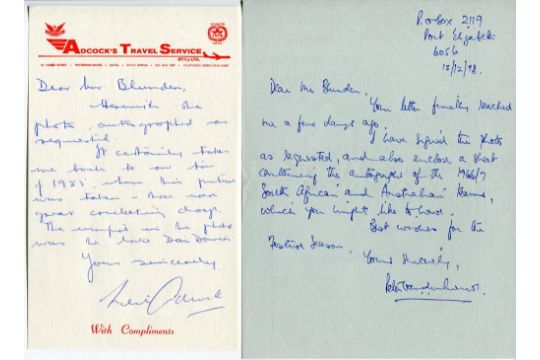 ADCOCK'S TRAVEL SERVICE
Dear Mr. Blunden,
Herewith the
photo, autographed as
requested.
It certainly takes
me back to our tour
of 1955, when this picture
was taken - those were
great cricketing days.
The umpire in the photo
was the late Dai Davies
Yours sincerely,
With Compliments
P.O. Box 2119
Port Elizabeth
6056
13/12/98.
Dear Mr Blunden,
Your letter finally reached
me a few days ago.
I have signed the photo
as requested, and also enclose a sheet
containing the autographs of the 1966/7
South African and Australian teams,
which you might like to have.
Best wishes for the
Festive Season.
Yours Sincerely,